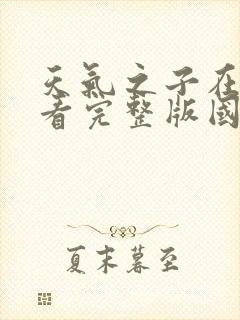 天氣之子在
看完整版國
夏末暮至